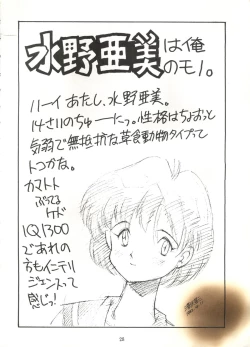 水野亜美は俺のモノ。
ハーイ あたし、水野亜美。
14さいのちゅーにっ。性格はちょおっと
気弱で無抵抗な草食動物タイプって
トコかな。
カマトト
ぶってる
ケド
IQ1300
であれの
方もインテリ
ジェンスって
感じっ!
28